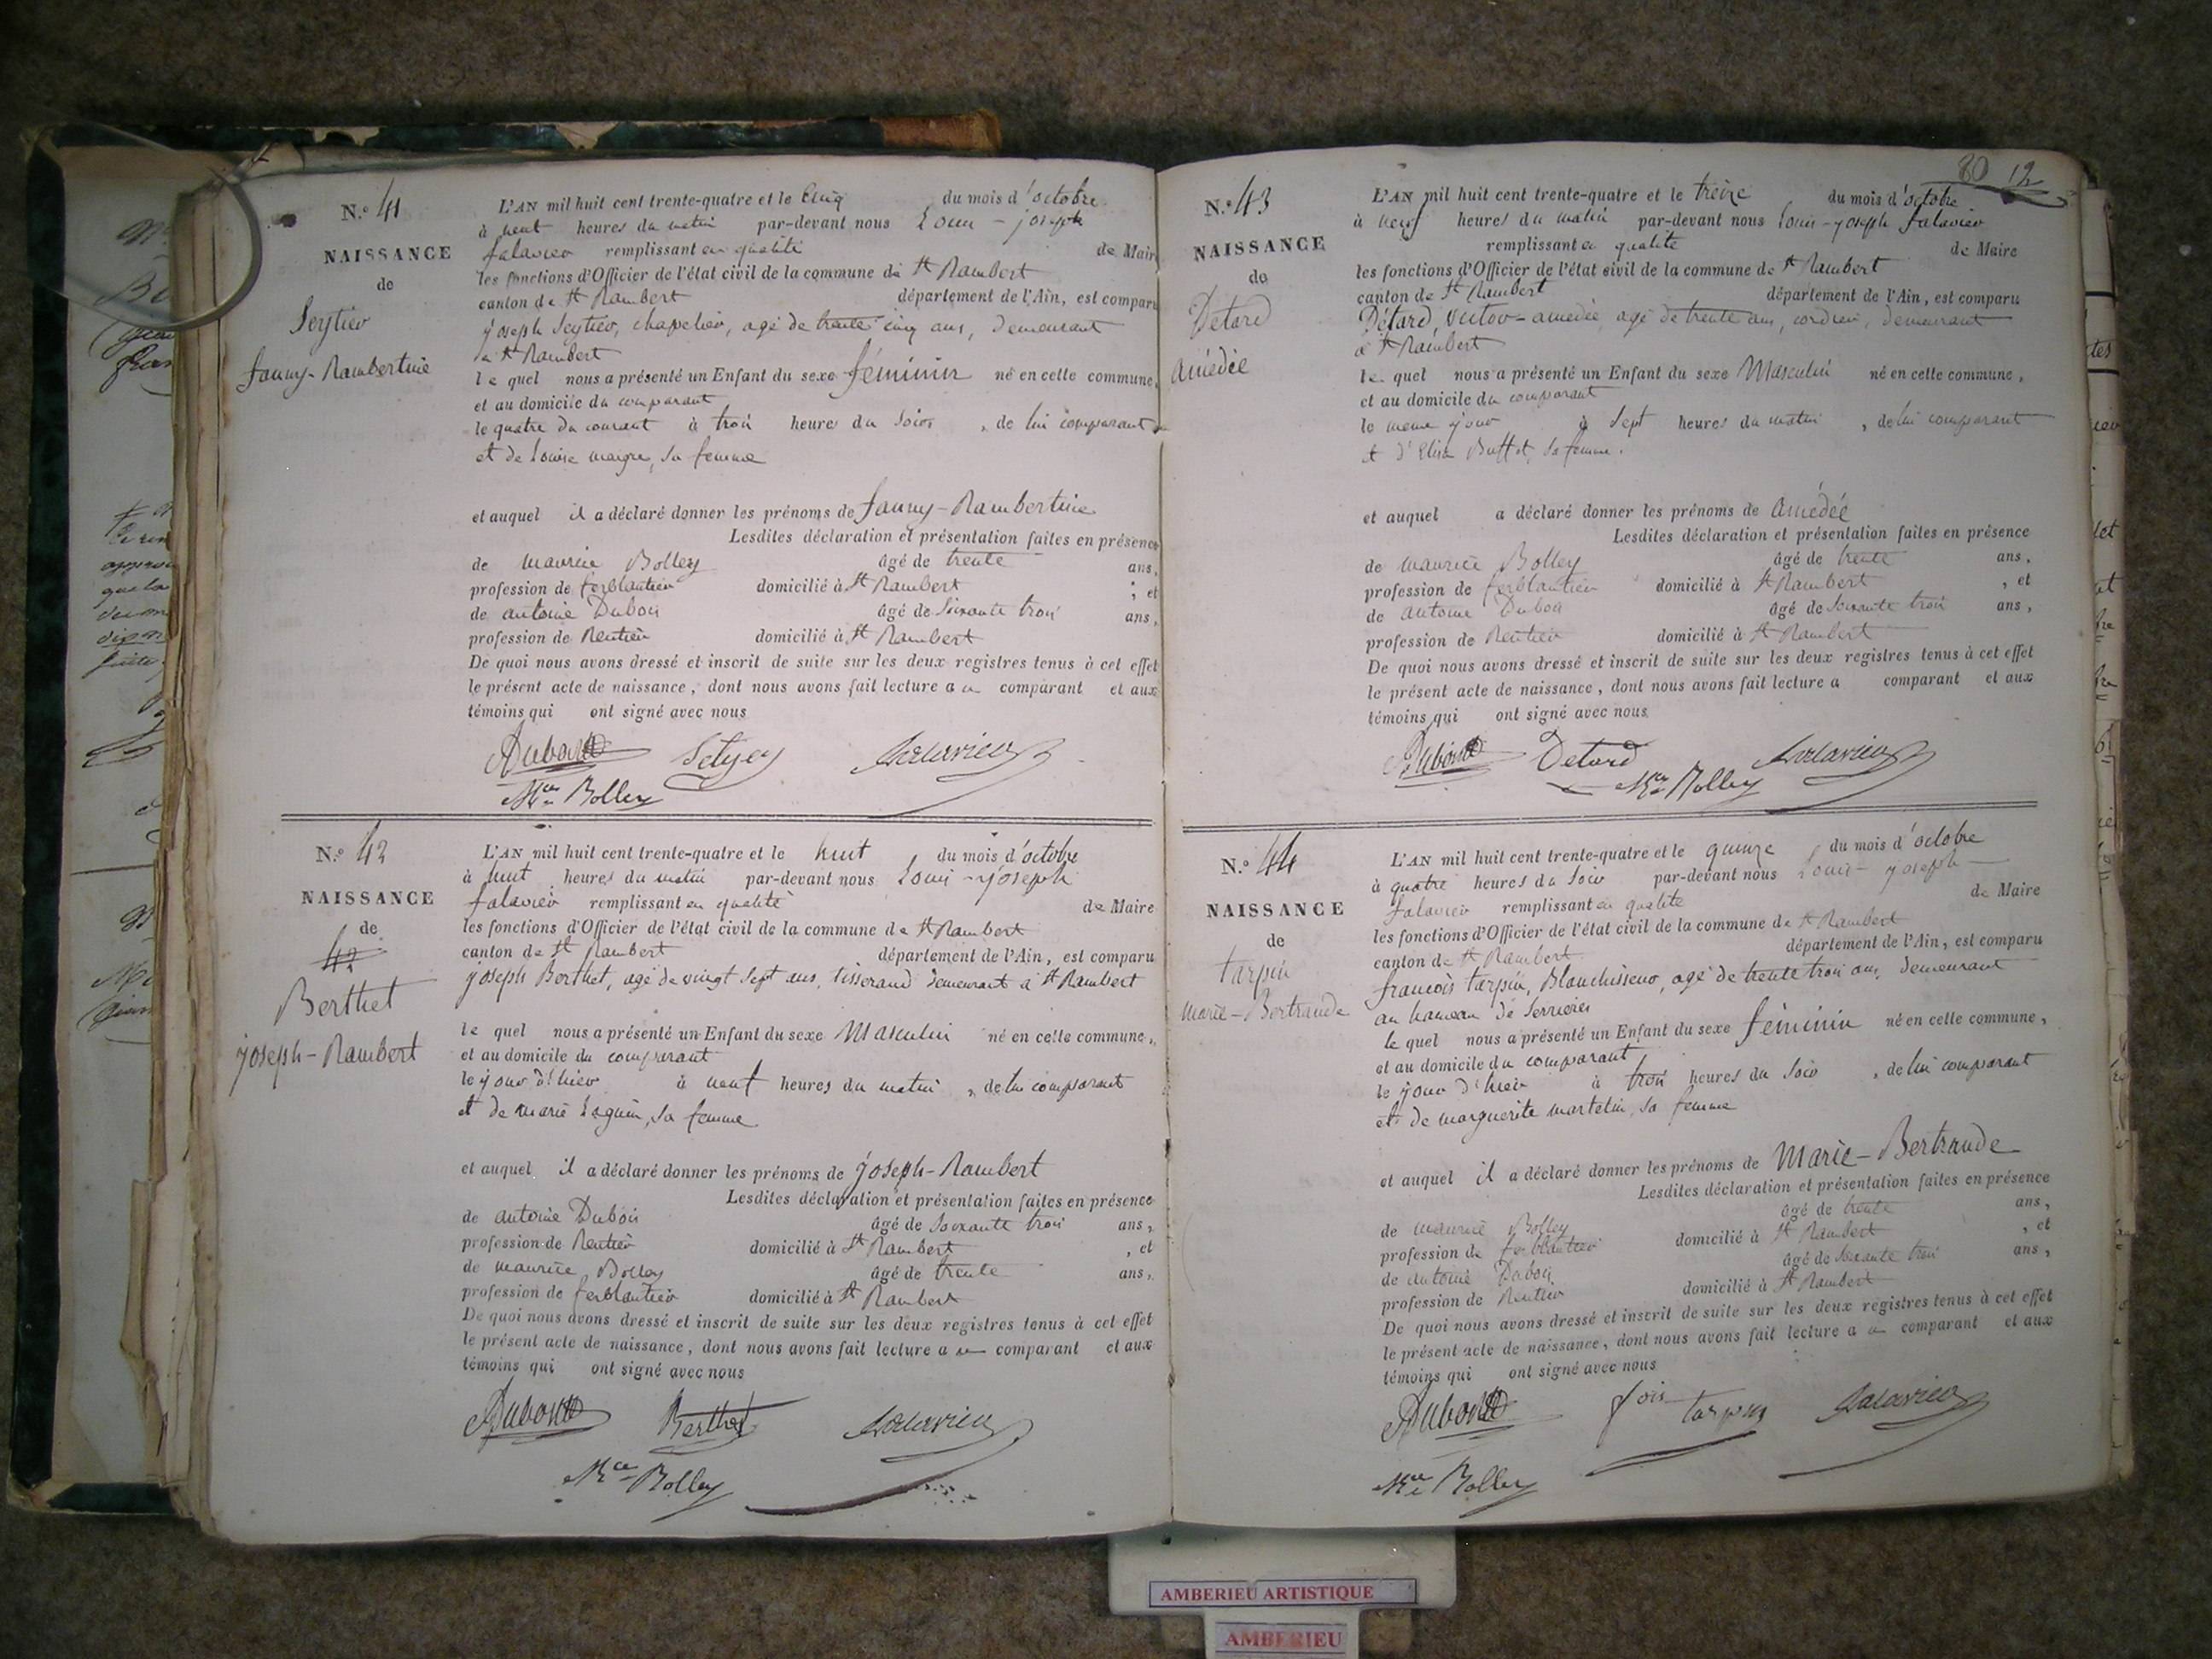 N.º 41
NAISSANCE
de
Seytier
fanny-Rambertine
L'AN mil huit cent trente-quatre et le cinq du mois d'octobre
à neuf heures du matin par-devant nous Louis-joseph
falavier remplissant en qualité de Mair
les fonctions d'Officier de l'état civil de la commune de St Rambert
canton de St Rambert département de l'Ain, est comparu
joseph Seytier, chapelier, agé de trente cinq ans, demeurant
à St Rambert
le quel nous a présenté un Enfant du sexe féminin né en cette commune,
et au domicile du comparant
le quatre du courant à trois heures du soir, de lui comparant
et de Louise maigre, sa femme
et auquel il a déclaré donner les prénoms de fanny-Rambertine
Lesdites déclaration et présentation faites en présence
de maurice Bolley âgé de trente ans,
profession de ferblantier domicilié à St Rambert ; et
de antoine Dubois âgé de Soixante trois ans,
profession de Rentier domicilié à St Rambert
De quoi nous avons dressé et inscrit de suite sur les deux registres tenus à cet effet
le présent acte de naissance, dont nous avons fait lecture au comparant et aux
témoins qui ont signé avec nous
Dubois Falavier
Mce Bolley
N.º 42
NAISSANCE
de
42
Berthet
joseph-Rambert
L'AN mil huit cent trente-quatre et le huit du mois d'octobre
à huit heures du matin par-devant nous Louis-joseph
falavier remplissant en qualité de Maire
les fonctions d'Officier de l'état civil de la commune de St Rambert
canton de St Rambert département de l'Ain, est comparu
joseph Berthet, agé de vingt Sept ans, tisserand demeurant à St Rambert
le quel nous a présenté un Enfant du sexe Masculin né en cette commune,
et au domicile du comparant
le jour d'hier à neuf heures du matin, de lui comparant
et de marie, sa femme
et auquel il a déclaré donner les prénoms de joseph-Rambert
Lesdites déclaration et présentation faites en présence
de antoine Dubois âgé de Soixante trois ans,
profession de Rentier domicilié à St Rambert, et
de maurice Bolley âgé de trente ans,
profession de ferblantier domicilié à St Rambert
De quoi nous avons dressé et inscrit de suite sur les deux registres tenus à cet effet
le présent acte de naissance, dont nous avons fait lecture au comparant et aux
témoins qui ont signé avec nous
Dubois Berthet Falavier
Mce Bolley
80 12
N.º 43
NAISSANCE
de
Détard
amédée
L'AN mil huit cent trente-quatre et le treize du mois d'octobre
à neuf heures du matin par-devant nous Louis-joseph falavier
remplissant en qualité de Maire
les fonctions d'Officier de l'état civil de la commune de St Rambert
canton de St Rambert département de l'Ain, est comparu
Détard, victor-amedée, agé de trente ans, cordier, demeurant
à St Rambert
le quel nous a présenté un Enfant du sexe Masculin né en cette commune,
et au domicile du comparant
le meme jour à Sept heures du matin, de lui comparant
et d'Elisa Buffet, sa femme.
et auquel a déclaré donner les prénoms de amédée
Lesdites déclaration et présentation faites en présence
de maurice Bolley âgé de trente ans,
profession de ferblantier domicilié à St Rambert, et
de antoine Dubois âgé de Soixante trois ans,
profession de Rentier domicilié à St Rambert
De quoi nous avons dressé et inscrit de suite sur les deux registres tenus à cet effet
le présent acte de naissance, dont nous avons fait lecture a comparant et aux
témoins qui ont signé avec nous
Dubois Detard Falavier
Mce Bolley
N.º 44
NAISSANCE
de
tarpin
marie-Bertrande
L'AN mil huit cent trente-quatre et le quinze du mois d'octobre
à quatre heures du Soir par-devant nous Louis-joseph
falavier remplissant en qualité de Maire
les fonctions d'Officier de l'état civil de la commune de St Rambert
canton de St Rambert département de l'Ain, est comparu
francois tarpin, Blanchisseur, agé de trente trois ans, demeurant
au hameau de Serrieres
le quel nous a présenté un Enfant du sexe féminin né en cette commune,
et au domicile du comparant
le jour d'hier à trois heures du Soir, de lui comparant
et de marguerite martelin, sa femme
et auquel il a déclaré donner les prénoms de Marie-Bertrande
Lesdites déclaration et présentation faites en présence
de maurice Bolley âgé de trente ans,
profession de ferblantier domicilié à St Rambert, et
de antoine Dubois âgé de Soixante trois ans,
profession de Rentier domicilié à St Rambert
De quoi nous avons dressé et inscrit de suite sur les deux registres tenus à cet effet
le présent acte de naissance, dont nous avons fait lecture au comparant et aux
témoins qui ont signé avec nous
Dubois fois tarpin Falavier
Mce Bolley
AMBERIEU ARTISTIQUE
AMBERIEU